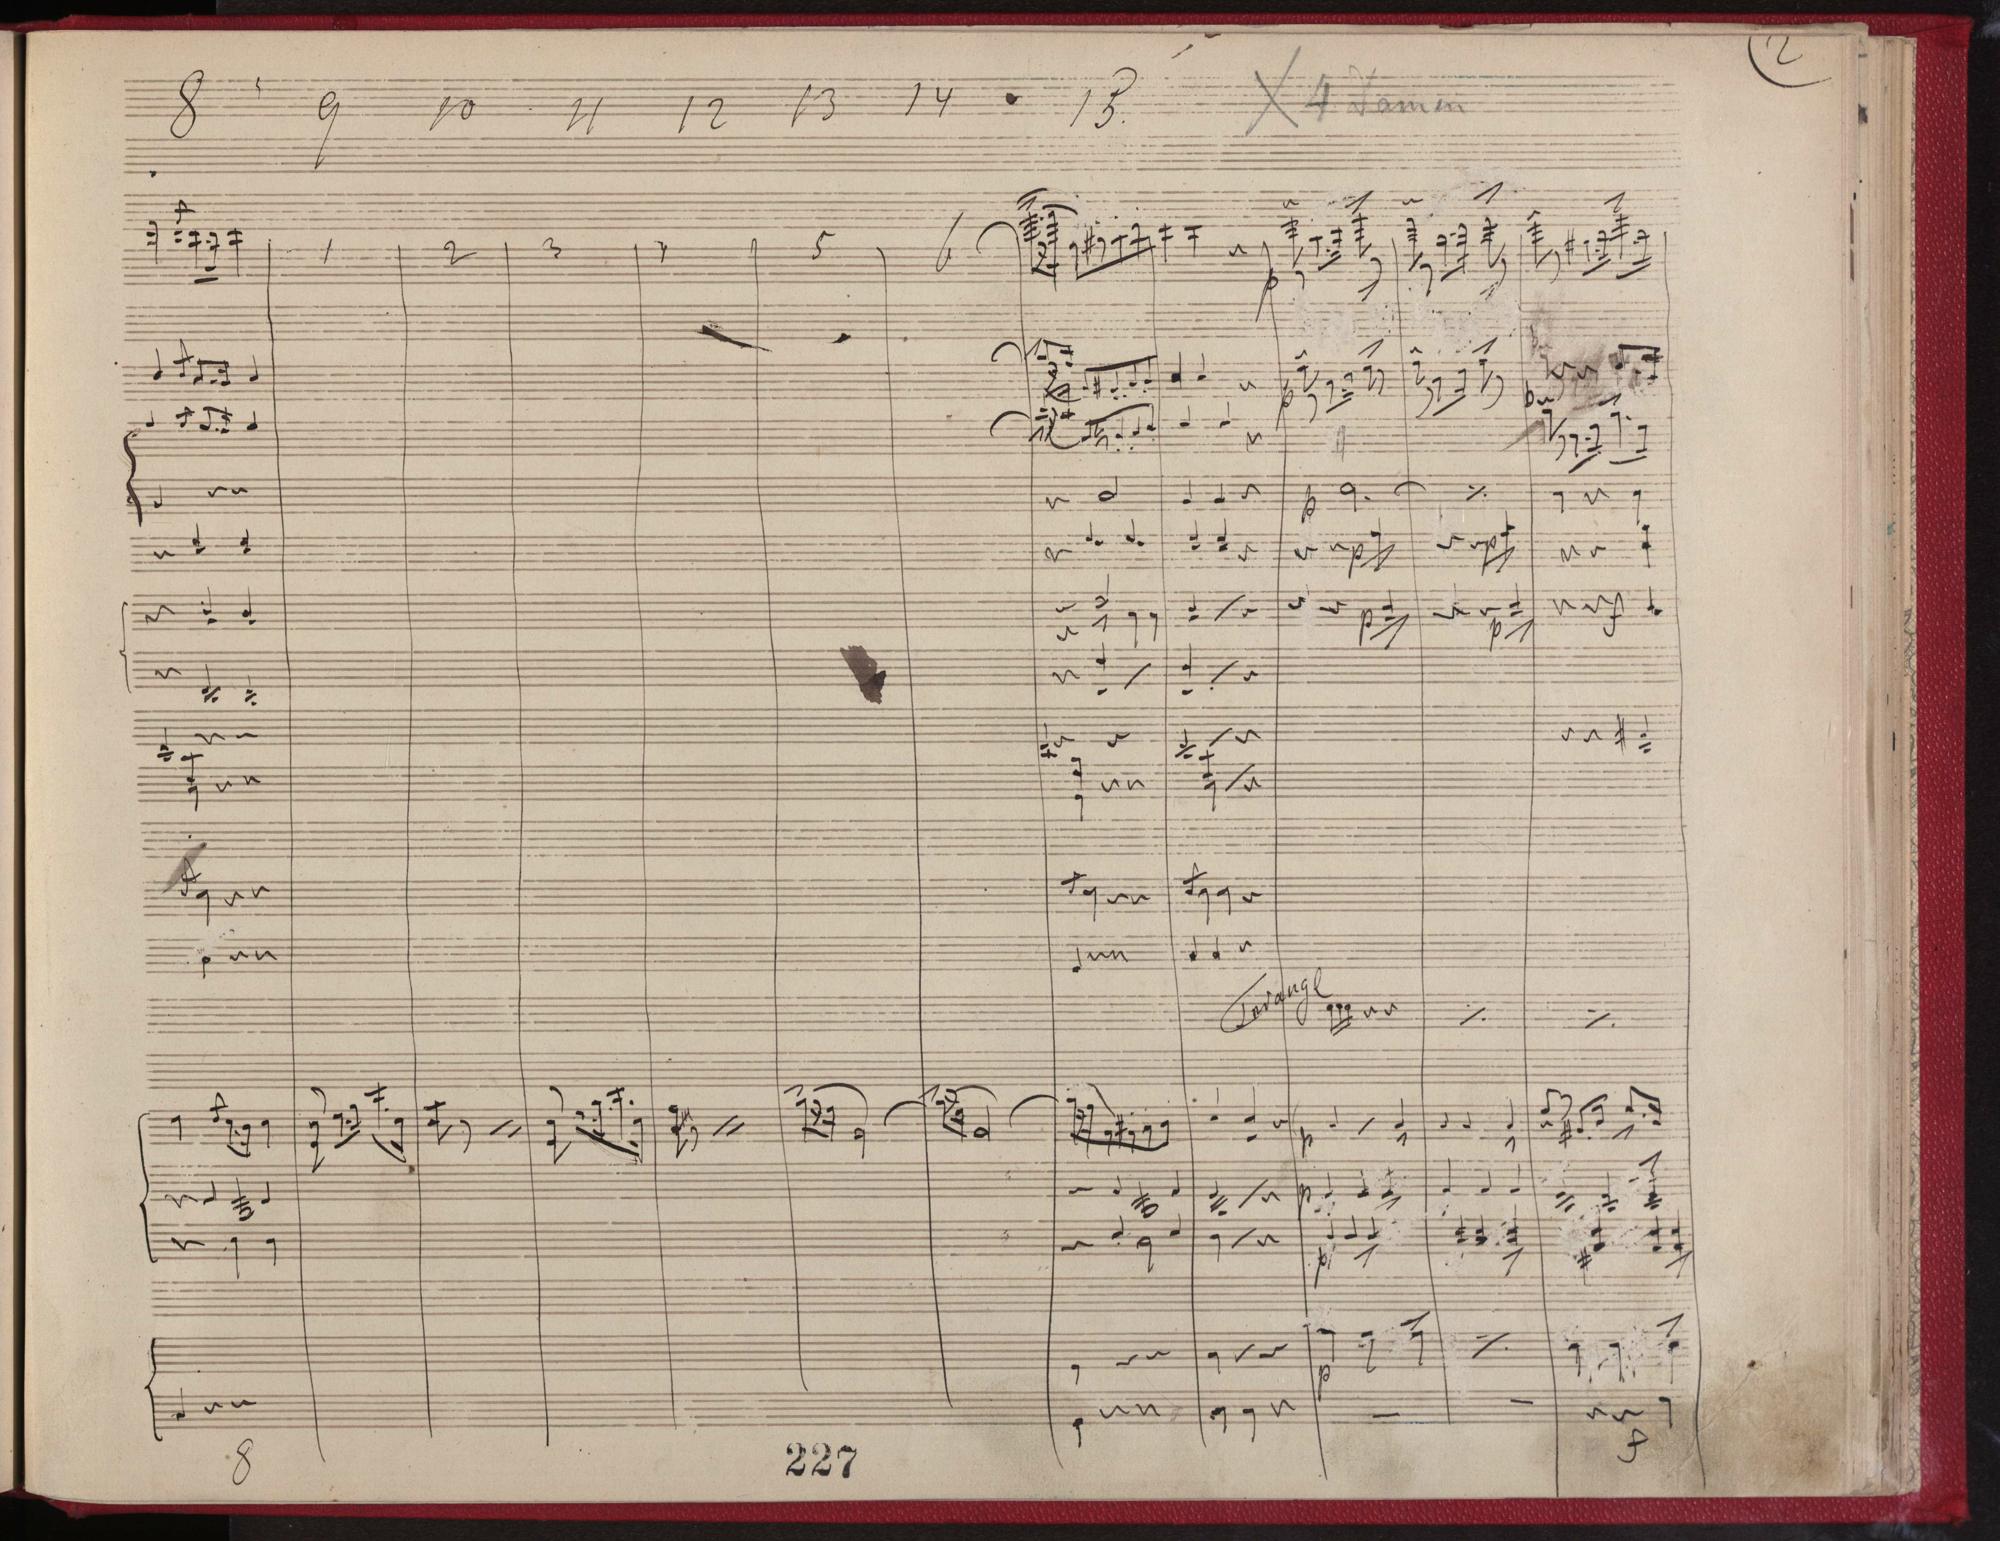 2
8 9 10 11 12 13 14 15. X 4 Damen
1 2 3 4 5 6
p
p
p
Triangl
p
p
p
p
8 f
227